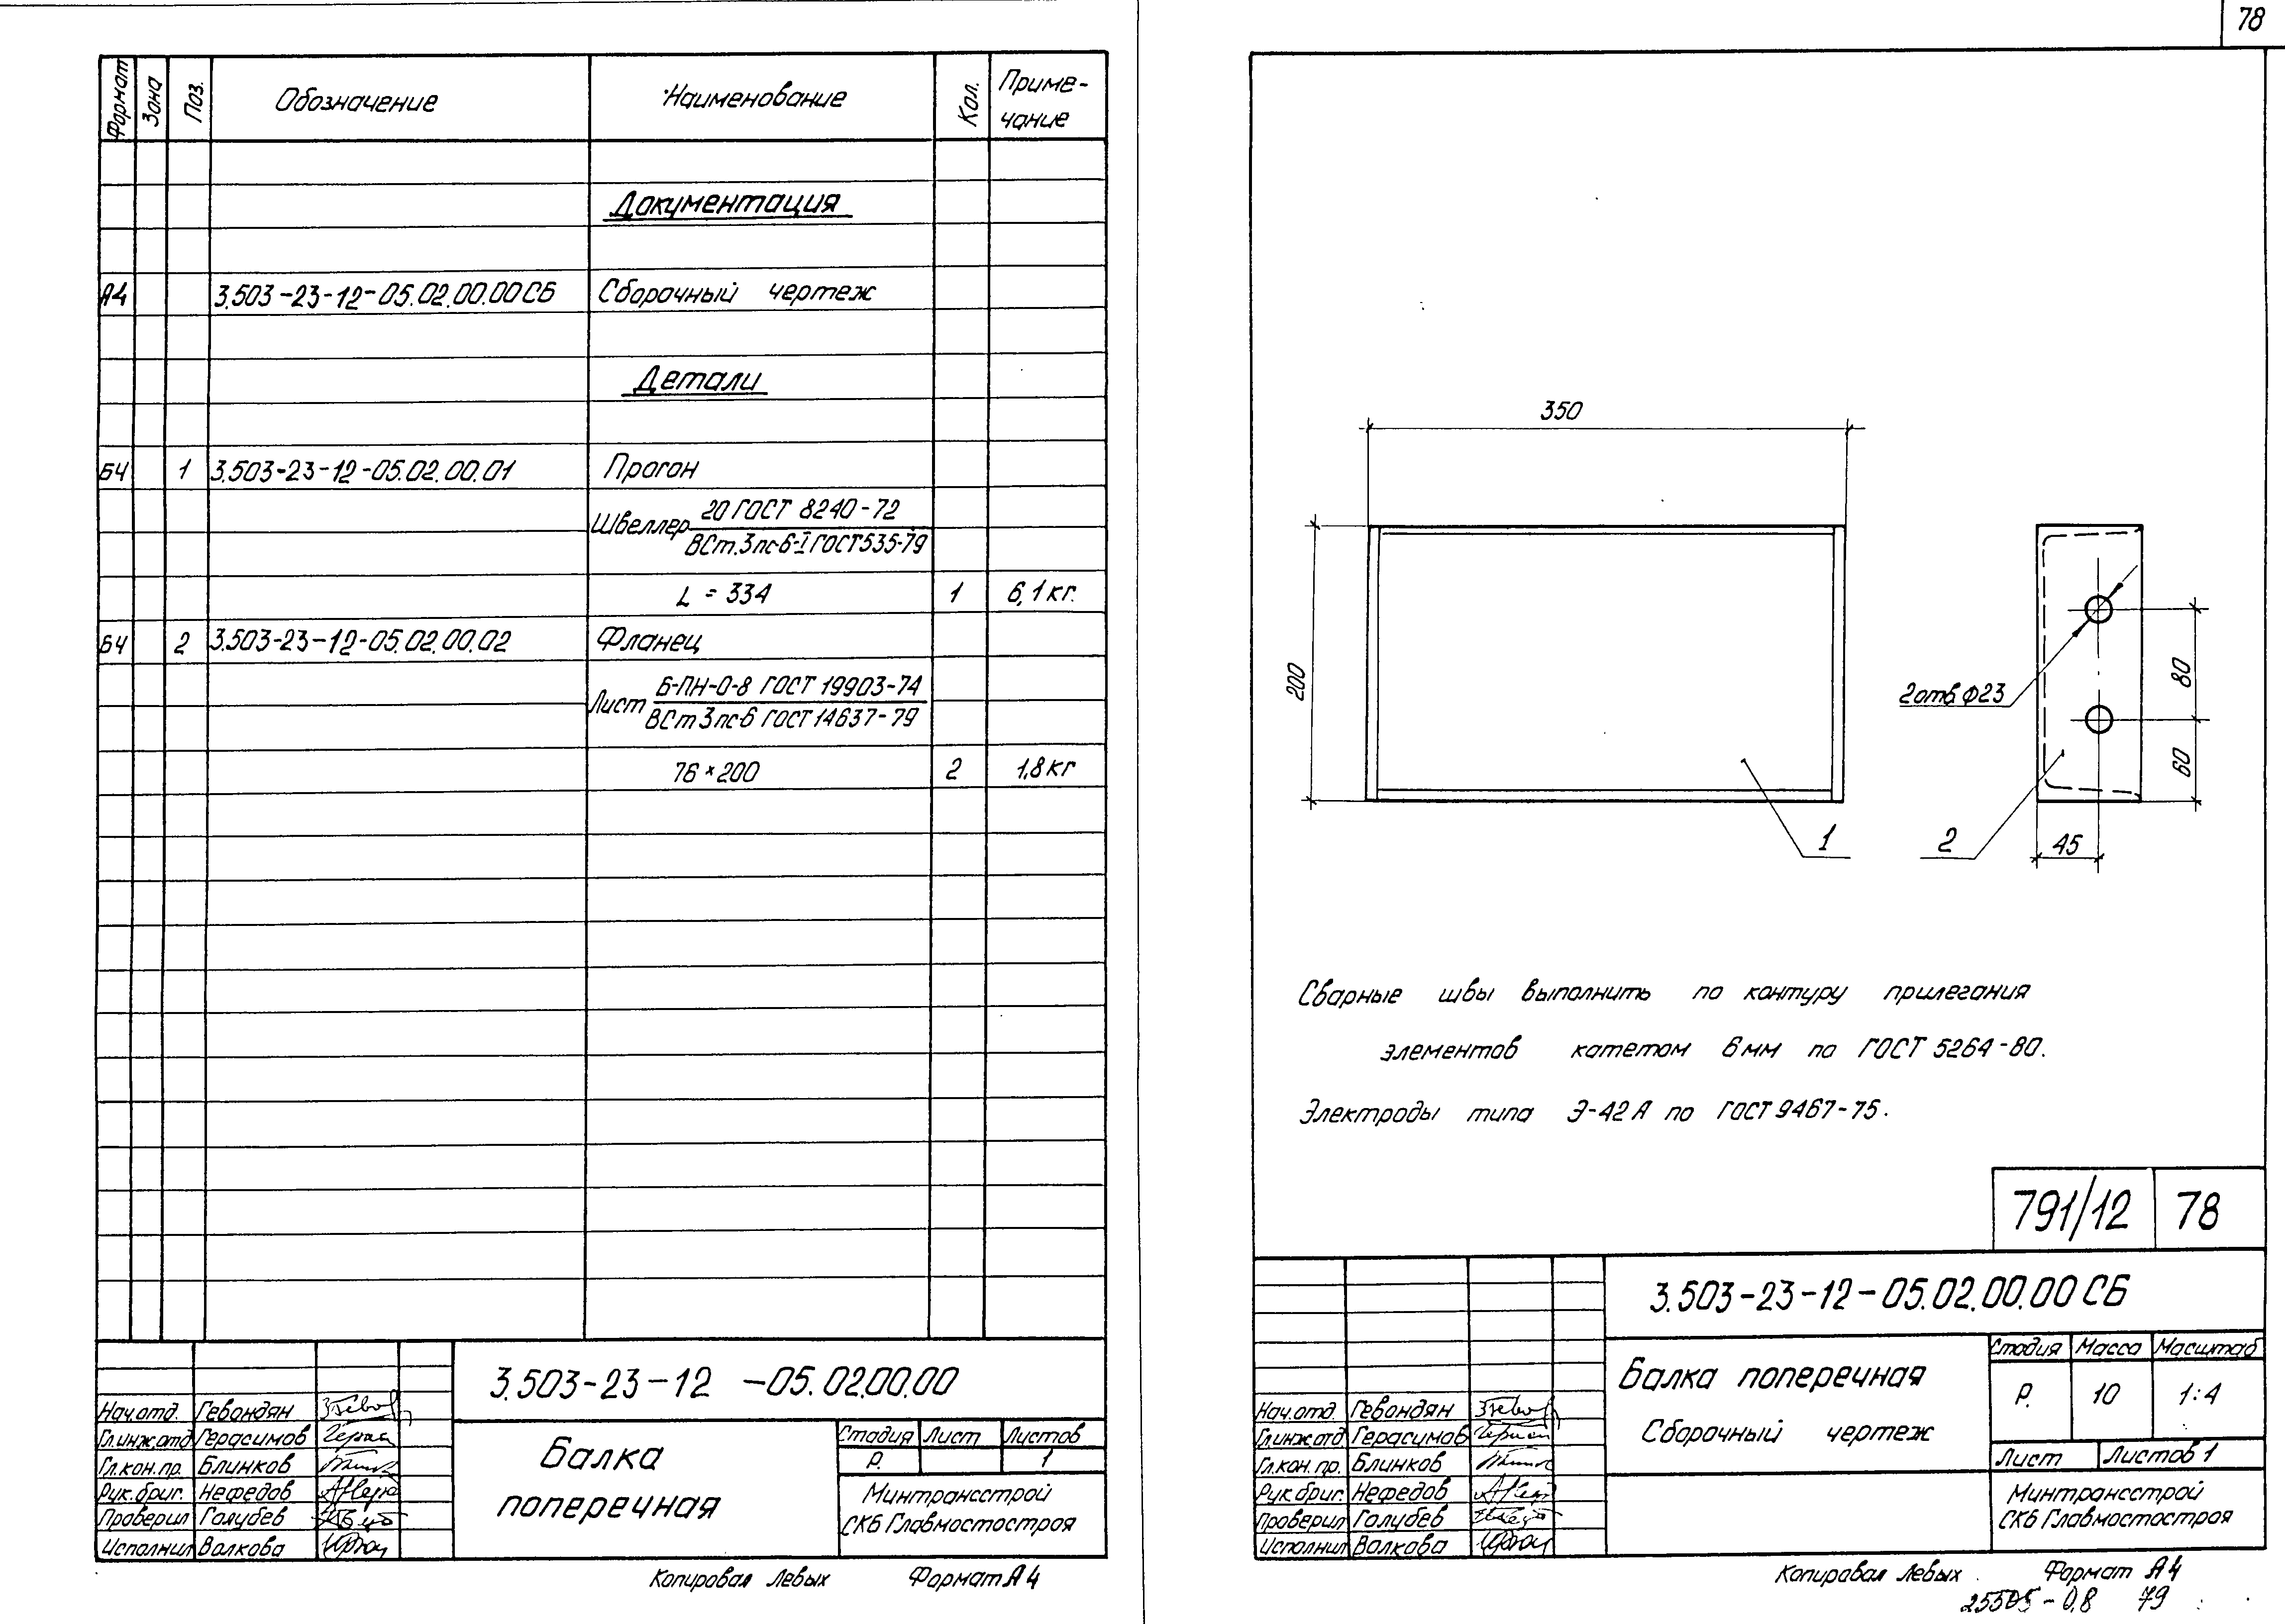 78
Формат Зона Поз. Обозначение Наименование Кол. Приме-
чание
Документация
А4 3.503-23-12-05.02.00.00СБ Сборочный чертеж
Детали
Б4 1 3.503-23-12-05.02.00.01 Прогон
Швеллер 20 ГОСТ 8240-72
ВСт.3пс6-I ГОСТ535-79
L = 334 1 6,1кг.
Б4 2 3.503-23-12-05.02.00.02 Фланец
Лист Б-ПН-0-8 ГОСТ 19903-74
ВСт3пс6 ГОСТ14637-79
76×200 2 1,8кг
3.503-23-12 -05.02.00.00
Нач.отд. Гевондян
Гл.инж.отд Герасимов
Гл.кон.пр. Блинков
Рук.бриг. Нефедов
Проверил Голубев
Исполнил Волкова
Балка
поперечная
Стадия Лист Листов
Р. 1
Минтрансстрой
СКБ Главмостостроя
Копировал Левых Формат А4
350
200
2отв.Ф23
80
60
45
1
2
Сварные швы выполнить по контуру прилегания
элементов катетом 6мм по ГОСТ 5264-80.
Электроды типа Э-42А по ГОСТ 9467-75.
791/12 78
3.503-23-12-05.02.00.00СБ
Балка поперечная
Сборочный чертеж
Стадия Масса Масштаб
Р. 10 1:4
Лист Листов 1
Нач.отд. Гевондян
Гл.инж.отд Герасимов
Гл.кон.пр. Блинков
Рук.бриг. Нефедов
Проверил Голубев
Исполнил Волкова
Минтрансстрой
СКБ Главмостостроя
Копировал Левых Формат А4
25505-08 79